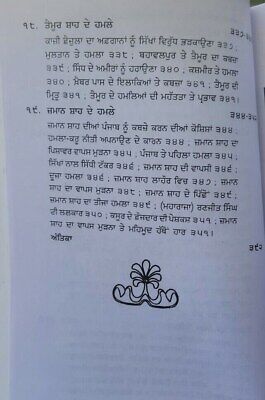 ੧੮. ਤੈਮੂਰ ਸ਼ਾਹ ਦੇ ਹਮਲੇ
ਕਾਜ਼ੀ ਫ਼ੈਜ਼ੁਲਾ ਦਾ ਅਫ਼ਗਾਨਾਂ ਨੂੰ ਸਿੱਖਾਂ ਵਿਰੁੱਧ ਭੜਕਾਉਣਾ ੩੩੭ ;
ਮੁਲਤਾਨ ਤੇ ਹਮਲਾ ੩੩੯ ; ਬਹਾਵਲਪੁਰ ਤੇ ਤੈਮੂਰ ਦਾ ਕਬਜ਼ਾ
੩੩੯ ; ਸਿੰਧ ਦੇ ਅਮੀਰਾਂ ਨੂੰ ਹਰਾਉਣਾ ੩੪੦ ; ਕਸ਼ਮੀਰ ਤੇ ਹਮਲਾ
੩੪੦ ; ਖ਼ੈਬਰ ਪਾਸ ਦੇ ਇਲਾਕਿਆਂ ਤੇ ਕਬਜ਼ਾ ੩੪੧ ; ਤੈਮੂਰ ਦੀ
ਮ੍ਰਿਤੂ ੩੪੧ ; ਤੈਮੂਰ ਦੇ ਹਮਲਿਆਂ ਦੀ ਮਹੱਤਤਾ ਤੇ ਪ੍ਰਭਾਵ ੩੪੧ ।
੧੯. ਜ਼ਮਾਨ ਸ਼ਾਹ ਦੇ ਹਮਲੇ
ਜ਼ਮਾਨ ਸ਼ਾਹ ਦੀਆਂ ਪੰਜਾਬ ਨੂੰ ਕਬਜ਼ੇ ਕਰਨ ਦੀਆਂ ਕੋਸ਼ਿਸ਼ਾਂ ੩੪੪ ;
ਹਮਲਾ-ਕਰੂ ਨੀਤੀ ਅਪਨਾਉਣ ਦੇ ਕਾਰਨ ੩੪੪ ; ਜ਼ਮਾਨ ਸ਼ਾਹ ਦਾ
ਪਿਸ਼ਾਵਰ ਵਾਪਸ ਮੁੜਨਾ ੩੪੫ ; ਪੰਜਾਬ ਤੇ ਪਹਿਲਾ ਹਮਲਾ ੩੪੫ ;
ਸਿੱਖਾਂ ਨਾਲ ਸਿੱਧੀ ਟੱਕਰ ੩੪੬ ; ਜ਼ਮਾਨ ਸ਼ਾਹ ਦੀ ਵਾਪਸੀ ੩੪੬ ;
ਦੂਜਾ ਹਮਲਾ ੩੪੬ ; ਜ਼ਮਾਨ ਸ਼ਾਹ ਲਾਹੌਰ ਵਿਚ ੩੪੭ ; ਜ਼ਮਾਨ
ਸ਼ਾਹ ਦਾ ਵਾਪਸ ਮੁੜਨਾ ੩੪੮ ; ਜ਼ਮਾਨ ਸ਼ਾਹ ਦੇ ਪਿੱਛੋਂ ੩੪੯ ;
ਜ਼ਮਾਨ ਸ਼ਾਹ ਦਾ ਤੀਜਾ ਹਮਲਾ ੩੪੯ ; (ਮਹਾਰਾਜਾ) ਰਣਜੀਤ ਸਿੰਘ
ਦੀ ਲਲਕਾਰ ੩੫੦ ; ਕਸੂਰ ਦੇ ਫ਼ੌਜਦਾਰ ਦੀ ਪੇਸ਼ਕਸ਼ ੩੫੧ ; ਜ਼ਮਾਨ
ਸ਼ਾਹ ਦਾ ਵਾਪਸ ਮੁੜਨਾ ਤੇ ਮਹਿਮੂਦ ਹੱਥੋਂ ਹਾਰ ੩੫੧ ।
ਅੰਤਿਕਾ